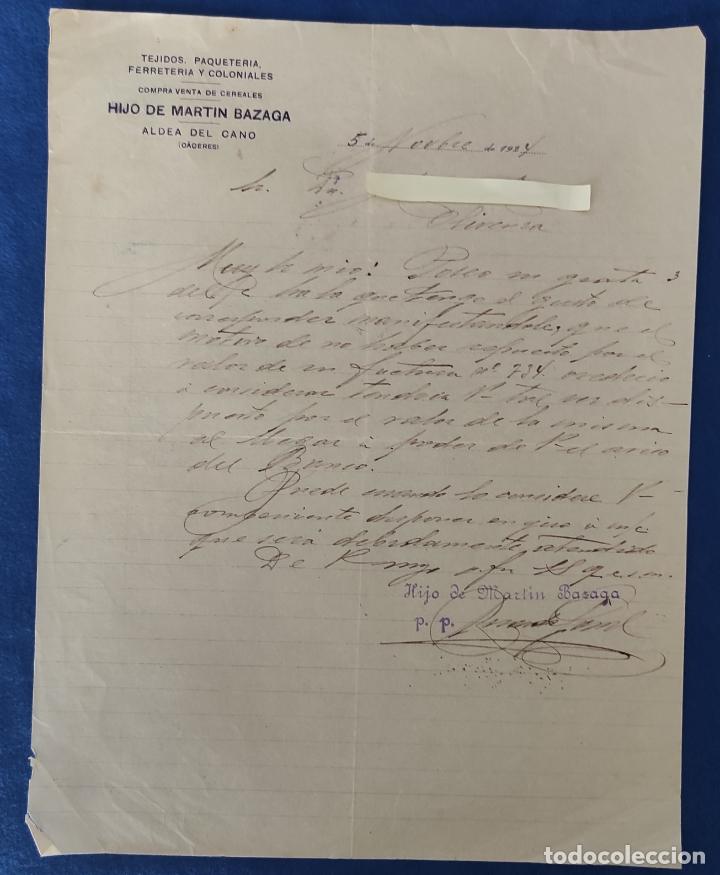 TEJIDOS, PAQUETERIA,
FERRETERIA Y COLONIALES
COMPRA VENTA DE CEREALES
HIJO DE MARTIN BAZAGA
ALDEA DEL CANO
(CÁCERES)
5 de Novbre de 1924
Sr. Dn.
Olivenza
Muy Sr mio: Poseo su grata 3
del Pe a la que tengo el gusto de
corresponder manifestandole, que el
motivo de no haber repuesto por el
valor de su factura nº 734. obedecio
á considerar tendria V- tal vez dis-
puesto por el valor de la misma
al llegar á poder de V- el aviso
del Banco.
Puede cuando lo considere V-
conveniente disponer en giro á m/c
que será debidamente atendido
De V muy
Hijo de Martin Bazaga
p. p.
todocoleccion